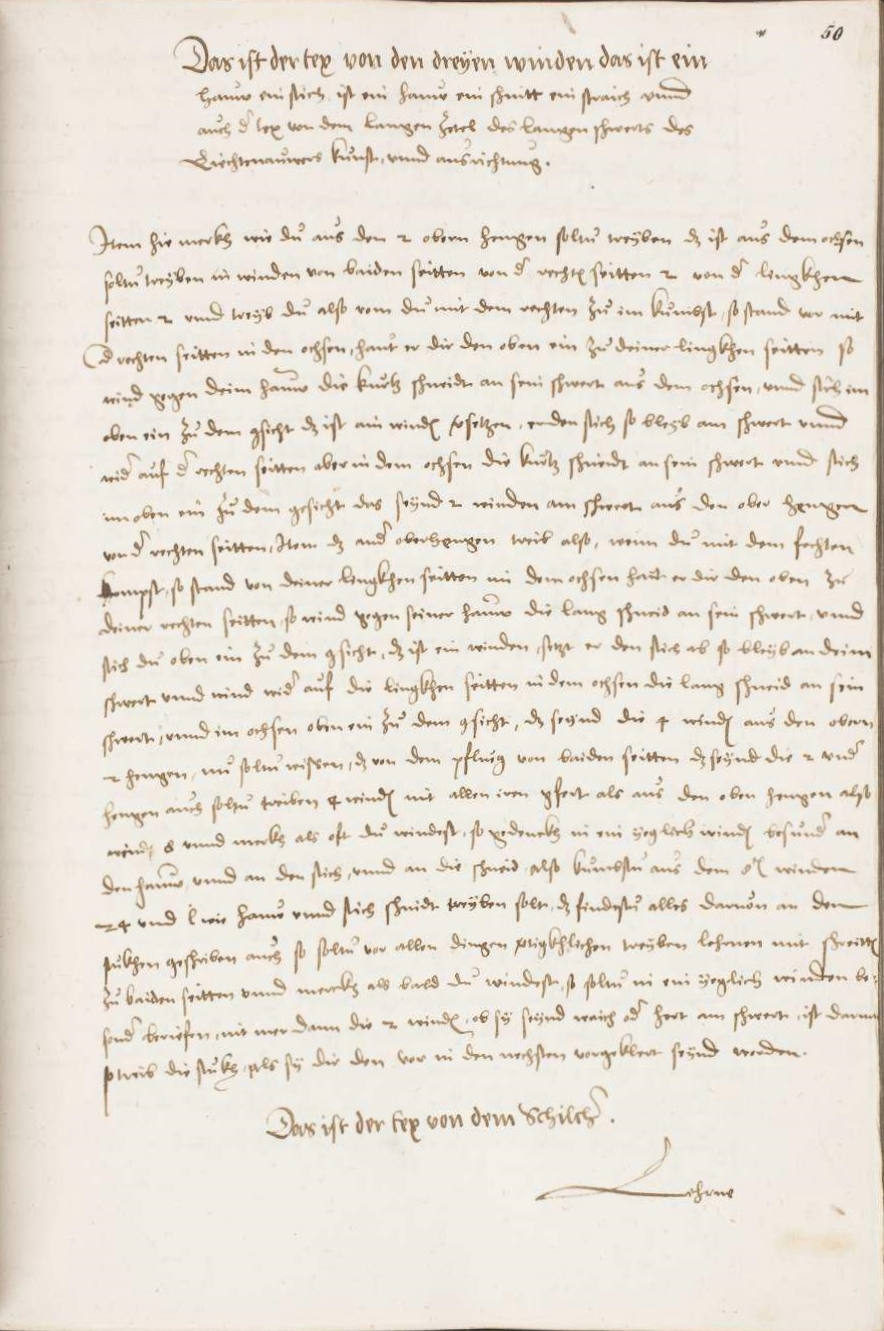 50
Das ist der tex von den dreyen winden das ist ein
hauw ein stich ist ein hauw ein schnitt ein straich vnnd
auch d tex von dem langen Zetel des langen schwerts des
Liechtenauwers kunst, vnnd ausrichtung.
Item hie merkh wie du aus den 2 obern hengen soltu treyben dz ist aus dem ochsen
soltu treyben in winden von baiden seitten von d rechtn seitten 2 von d lingkhen
seitten 2 vnnd treyb du also vom du mit dem rechten zu im kumbst, so stand vor mit
d rechten seitten in den ochsen, haut er dir den oben ein zu deiner lingkhen seitten so
wind gegen deim hauw die kurtz schneidt an sein schwert aus dem ochsen, vnnd stich im
oben ein zu dem gsicht dz ist ain windn vsetzen, er den stich so bleyb am schwert vnnd
wid auf d rechten seitten aber in dem ochsen die kurtz schneidt an sein schwert vnnd stich
im oben ein zu dem gesicht das seynd 2 winden am schwert aus den ober hengen
von d rechten seitten, Item dz and oberhengen treib also, wenn du mit dem fechten
kompst, so stand von deiner lingkhen seitten in dem ochsen haut er dir den oben zu
deiner rechten seitten, so wind gegen seiner hauw die lang schneid an sein schwert, vnnd
stich du oben ein zu dem gsicht, dz ist ein winden, setzt er den stich ab so bleyb an deim
schwert vnnd wind wid auf die lingkhen seitten in dem ochsen die lang schneid an sein
schwert, vnnd im ochsen oben ein zu dem gsicht, dz seynd die 4 windn aus den obern
2 hengen, nu soltu wissen, dz von dem pflueg von baiden seitten dz seynd die 2 vnd
hengen auch soltu treiben 4 windn mit allen iren gfert als aus den oben hengen also
windn 8 vnnd merkh als oft du windest, so gedenckh in ein yeglich windn besund an
den hauw, vnnd an den stich, vnnd an die schneid, also kumbstu aus dem winden
24 vnd wie hauw vnnd stich schnidt treyben solt, dz findestu alles daruon an den
stukhen geschriben auch so soltu vor allen dingen lehrnen mit schreittn
zu baiden seitten vnnd merckh als bald du windest, so soltu in ein yeglich winden be-
sond brieefen, nit mer dann die 2 windn, ob sy seynd waich od hert am schwert, ist darnn
so treib die stukh, als sy dir den vor in den nechsten vorgeklert seynd worden.
Das ist der tex von dem Schilch.
Lehrne